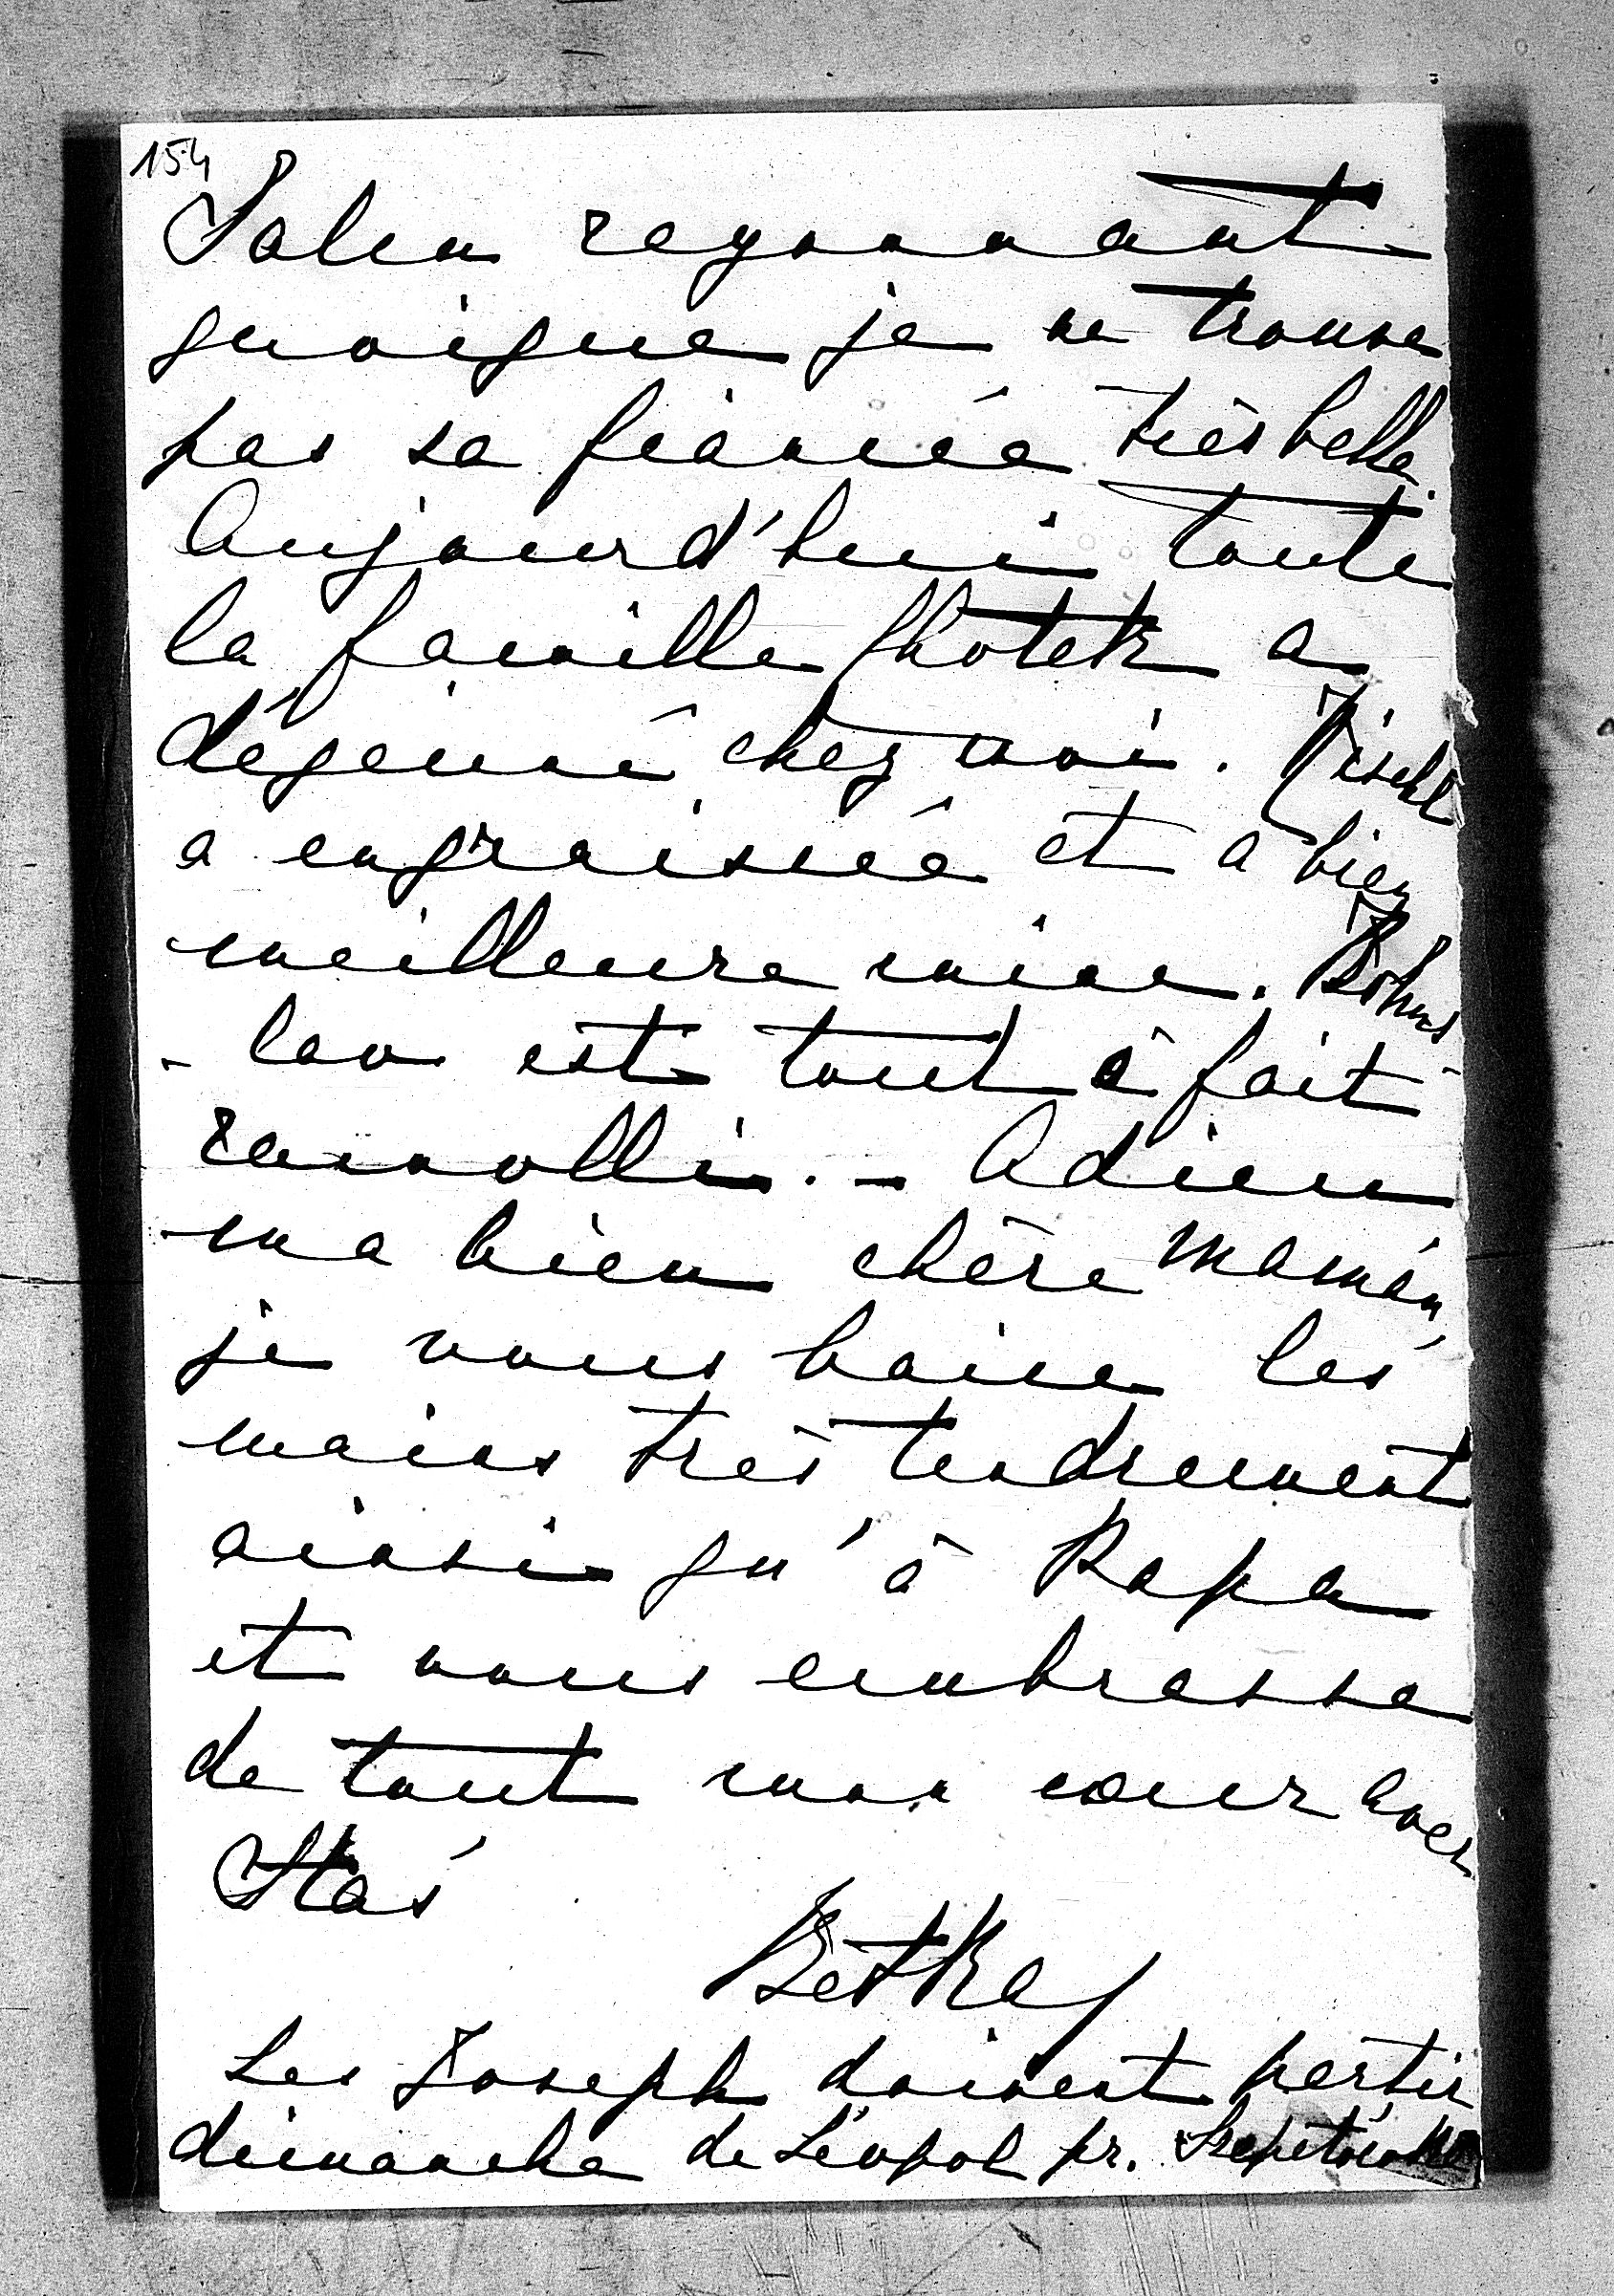 154
Salm rayonnant
quoique je ne trouve
pas sa fiancée très belle.
Aujourd'hui toute
la famille Chotek a
déjeuné chez moi. Rischl
a engraissé et a bien
meilleure mine. Bohus-
-lav est tout à fait
ramolli. - Adieu
ma bien chère Maman,
je vous baise les
mains très tendrement
ainsi qu'à Papa
et vous embrasse
de tout mon cœur avec
Staś
Betka
Les Joseph doivent partir
dimanche de Léopol pr.